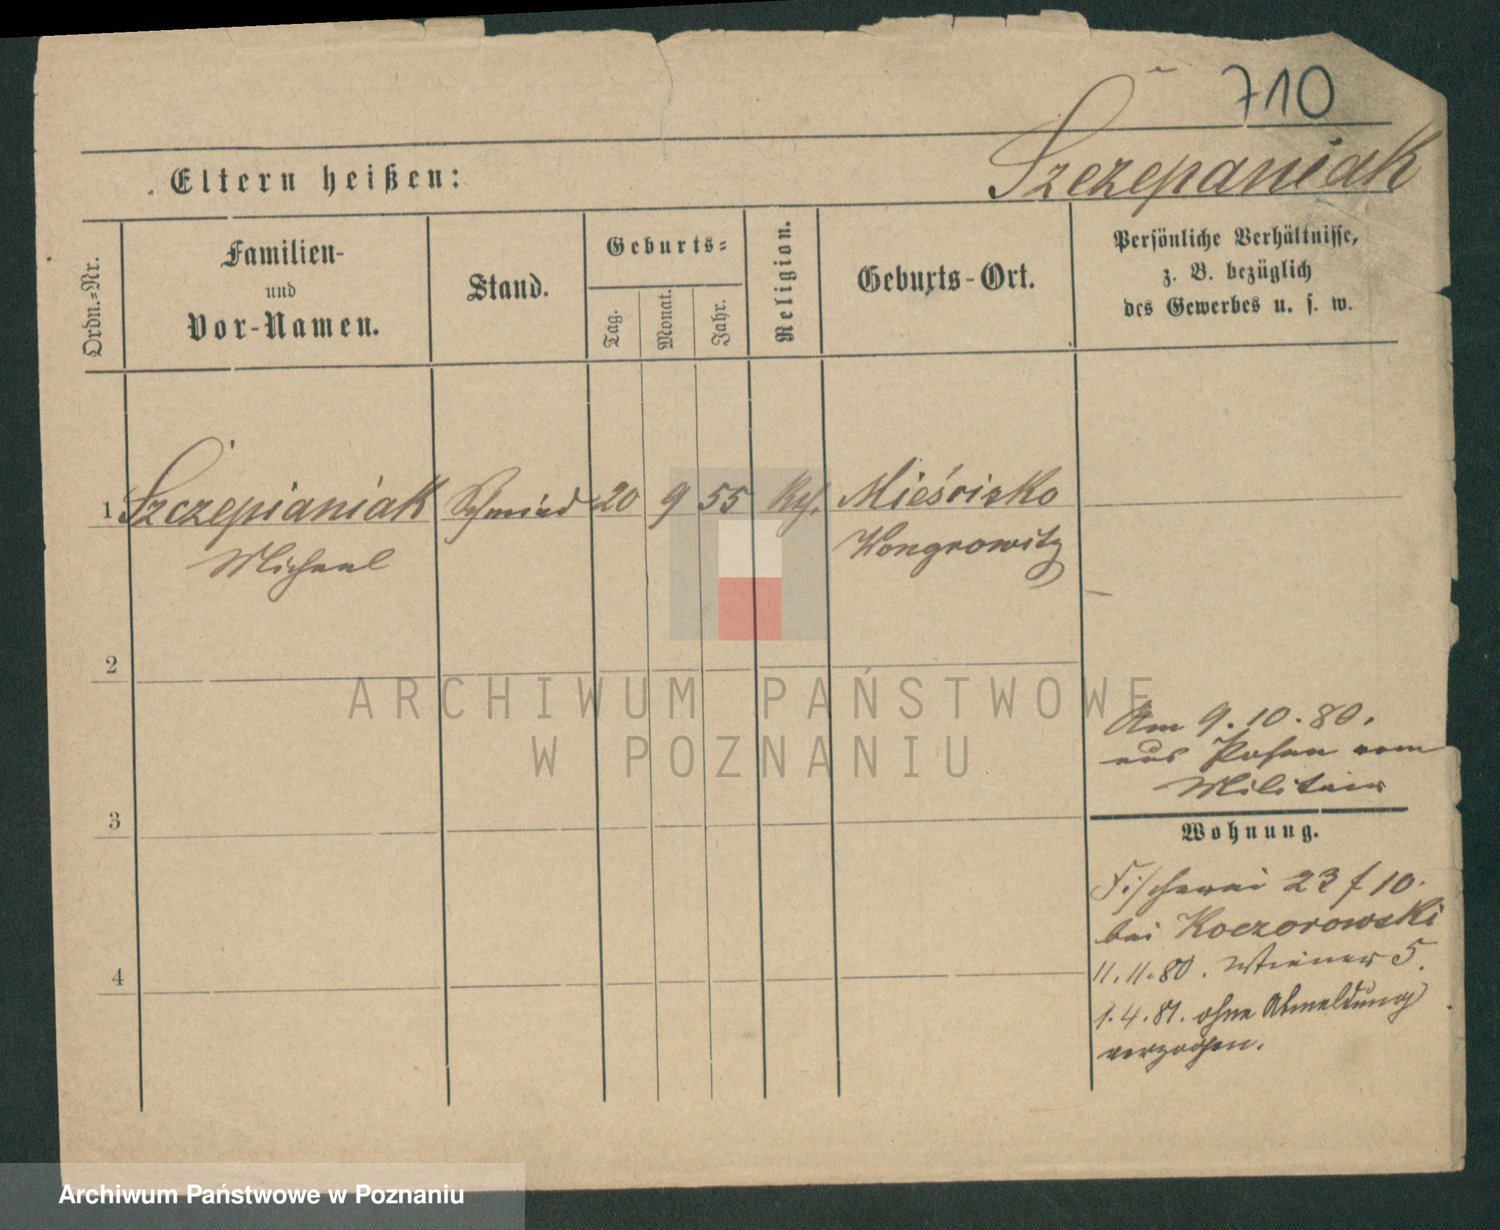 710
Szczepaniak
Eltern heißen:
Ordn.=Nr.
Familien-
und
Vor-Namen.
Stand.
Geburts=
Tag.
Monat.
Jahr.
Religion.
Geburts-Ort.
Persönliche Verhältnisse,
z. B. bezüglich
des Gewerbes u. s. w.
1 Szczepianiak Schmied 20 9 55 Miescisko
Michael Wongrowitz
2
ARCHIWUM PAŃSTWOWE
W POZNANIU
Am 9.10.80.
aus Posen vom
Militair
3
Wohnung.
Fischerei 23 f 10.
bei Koczorowski
4
11.11.80. Wiener 5.
1.4.81. ohne Abmeldung
verzogen.
Archiwum Państwowe w Poznaniu